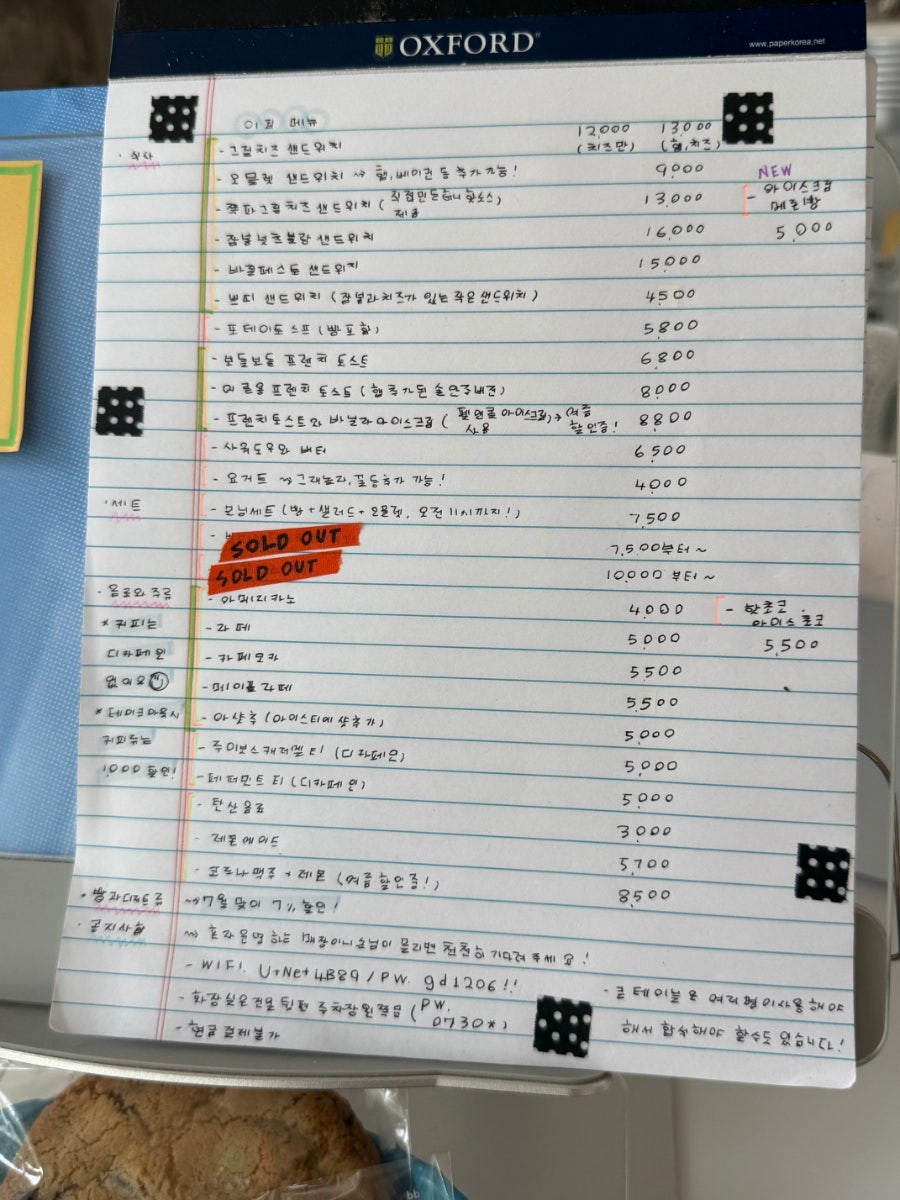 OXFORD
www.paperkorea.net
메뉴
12,000 13,000
· 식사 - 그릴치즈 샌드위치 (치즈만) (햄,치즈)
- 오믈렛 샌드위치 → 햄,베이컨 등 추가 가능! 9,000
NEW
- 쪽파그릴치즈 샌드위치 (직접만든허니핫소스 제공) 13,000
- 아이스크림 메론빵
5,000
- 잠봉 샌드위치 16,000
- 바질페스토 샌드위치 15,000
- 쁘띠 샌드위치 (잠봉과치즈가 있는 작은샌드위치) 4500
- 포테이토스프 (빵포함) 5800
- 보들보들 프렌치 토스트 6,800
- 프렌치 토스트 (햄 추가된 솔안주버전) 8,000
- 프렌치토스트와 바닐라아이스크림 (아이스크림 사용) → 여름 할인중! 8,800
- 사워도우와 버터 6,500
- 요거트 → 그래놀라,꿀등추가 가능! 4,000
· 세트 - 모닝세트 (빵+샐러드+오믈렛, 오전 11시까지!) 7,500
SOLD OUT 7,500부터~
SOLD OUT 10,000 부터~
· 음료와 주류
- 아메리카노 4,000
- 핫초코, 아이스 초코
5,500
* 커피는
디카페인
없어요
- 라떼 5,000
- 카페모카 5,500
- 메이플 라떼 5,500
* 테이크아웃시
커피류는
1,000 할인!
- 아샷추 (아이스티에 샷추가) 5,000
- 루이보스캐러멜 티 (디카페인) 5,000
- 페퍼민트 티 (디카페인) 5,000
- 탄산음료 3,000
- 레몬에이드 5,700
- 코로나맥주 + 레몬 (여름 할인중!) 8,500
- 빵과디저트류 → 7월 맞이 7% 할인!
· 공지사항 → 혼자운영 하는 매장이니 손님이 몰리면 천천히 기다려 주세요!
- WIFI. U+Net4B89 / PW. gd1206!!
- 화장실은 건물 뒤편 주차장 왼쪽임 (PW. 0730*)
- 현금 결제불가
- 큰 테이블은 여러명이사용해야
해서 합석해야 할수도 있습니다!